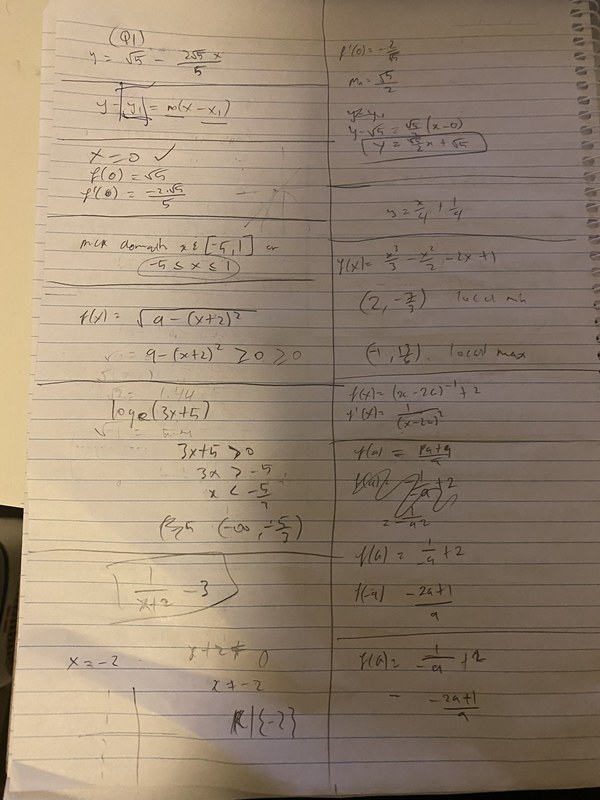 (Q1)
y = √5 − 2√5 x / 5
y − y₁ = m(x − x₁)
x = 0 ✓
f(0) = √5
f'(0) = −2√5 / 5
max domain x ∈ [−5, 1] or
−5 ≤ x ≤ 1
f(x) = √(9 − (x+2)²)
9 − (x+2)² ≥ 0 ≥ 0
logₑ(3x+5)
3x+5 > 0
3x > −5
x < −5/3
(−∞, −5/3)
1/(x+2) − 3
x = −2
x+2 ≠ 0
x ≠ −2
R\{−2}
f'(0) = −2/√5
m = √5/2
y − √5 = √5/2 (x − 0)
y = √5/2 x + √5
y = x/4 + 1/4
f(x) = x³/3 − x²/2 − 2x + 1
(2, −7/3) local min
(−1, 13/6). local max
f(x) = (x − 2a)⁻¹ + 2
f'(x) = 1/(x−2a)²
f(a) = 1/−a + 2
f(a) = 1/a + 2
f(a) −2a+1 / a
f(a) = 1/−a + 2
= −2a+1 / a